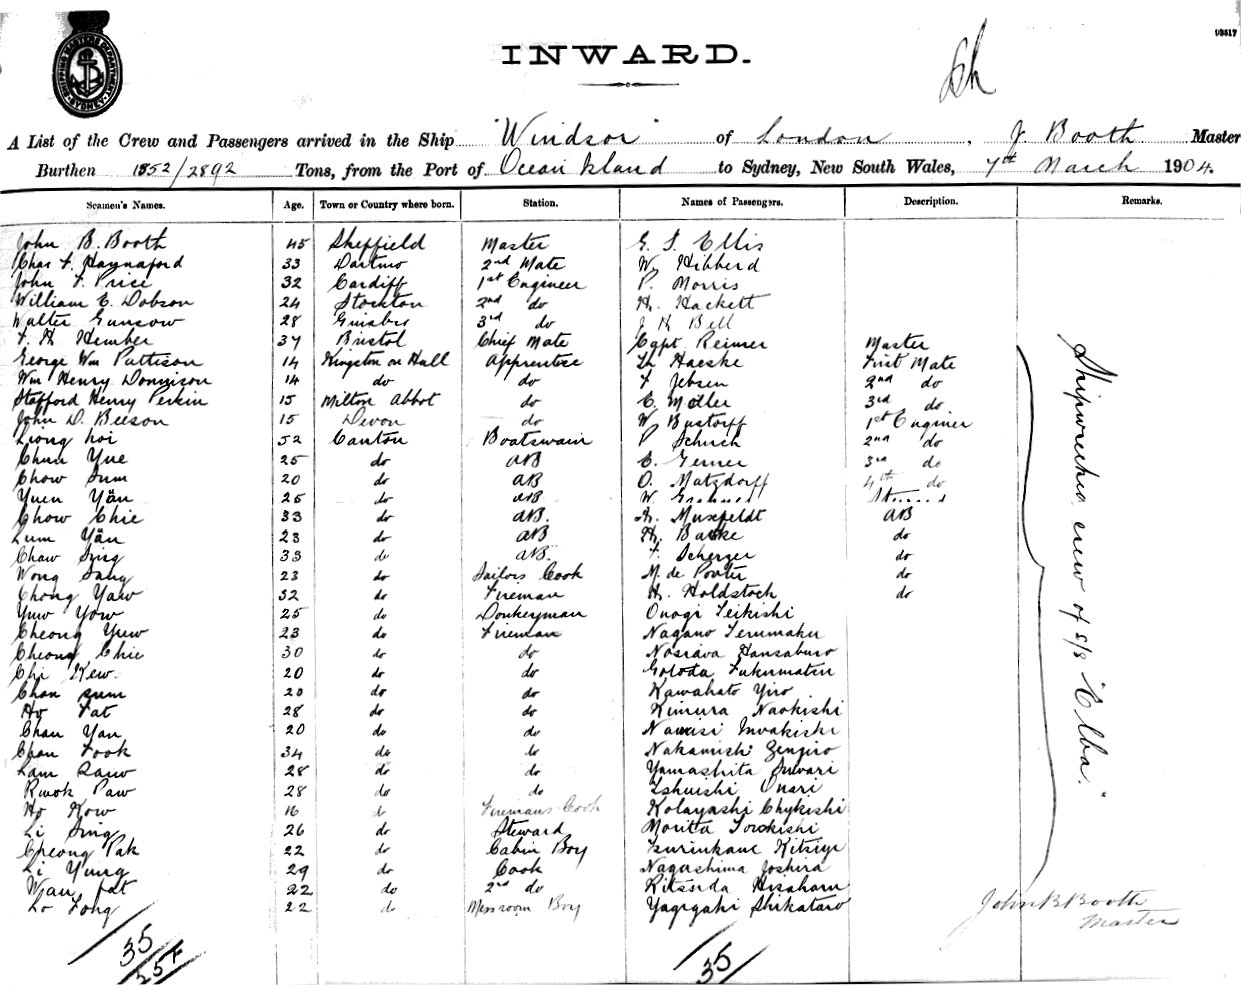 SHIPPING MASTER'S DEPARTMENT SYDNEY
03517
INWARD.
A List of the Crew and Passengers arrived in the Ship "Windsor" of London, J. Booth Master
Burthen 1852/2892 Tons, from the Port of Ocean Island to Sydney, New South Wales, 7th March 1904.
Seamen's Names. Age. Town or Country where born. Station. Names of Passengers. Description. Remarks.
John B. Booth 45 Sheffield Master G. S. Ellis
Chas F. Haynaford 33 2nd Mate W. Hibberd
John F. Price 32 Cardiff 1st Engineer P. Morris
William C. Dobson 24 Stockton 2nd do H. Hackett
Walter Gunsow 28 3rd do J H Bell
F. H. Hember 37 Bristol Chief Mate Capt Reimer Master
George Wm Pattison 14 Kingston on Hull Apprentice Th Haeske First Mate
Wm Henry Dennison 14 do do F Jebsen 2nd do
Stafford Henry Perkin 15 Milton Abbot do C. Moller 3rd do
John D. Beeson 15 Devon do W Bustorff 1st Enginer
Leong hoi 52 Canton Boatswain P Schuch 2nd do
Chun Yue 25 do AB C. Gerner 3rd do
Chow Sum 20 do AB O. Matzdorff 4th do
Yuen Yän 25 do AB W.
Chow Chie 33 do AB. A. Muxfeldt AB
Lum Yän 23 do AB H. Barke do
Chaw Sing 33 do AB F. Scherzer do
Wong Sang 23 do Sailors Cook M. de Porter do
Chong Yaw 32 do Fireman H. Holdstock do
Yuw Yow 25 do Donkeyman Onogi Teikishi
Cheong Yuw 23 do Fireman Nagano Terumaku
Cheong Chie 30 do do Nosrava Hansaburo
Chi Kew 20 do do Gotoda Fukumatsu
Chan Sum 20 do do Kawahato Yiro
Ho Fat 28 do do Kimura Naokishi
Chan Yan 20 do do Nawisi Invakishi
Chan Fook 34 do do Nakamishi Zenjiro
Lam Sauw 28 do do Yamashita Suwari
Kwok Paw 28 do do Ishuishi Unari
Ho Kow 16 do Firemans Cook Kolayashi Chykishi
Li Sing 26 do Steward Morita Torokishi
Cheong Pak 22 do Cabin Boy Tsurinkame Kitsiye
Li Yung 29 do Cook Nagashima Joshira
Wan Fat 22 do 2nd do Kitsuda Hisaharu
Lo Fong 22 do Messroom Boy Yagigahi Shikataro
Shipwrecked crew of s/s "Elba."
John B Booth
Master
35
25F
35